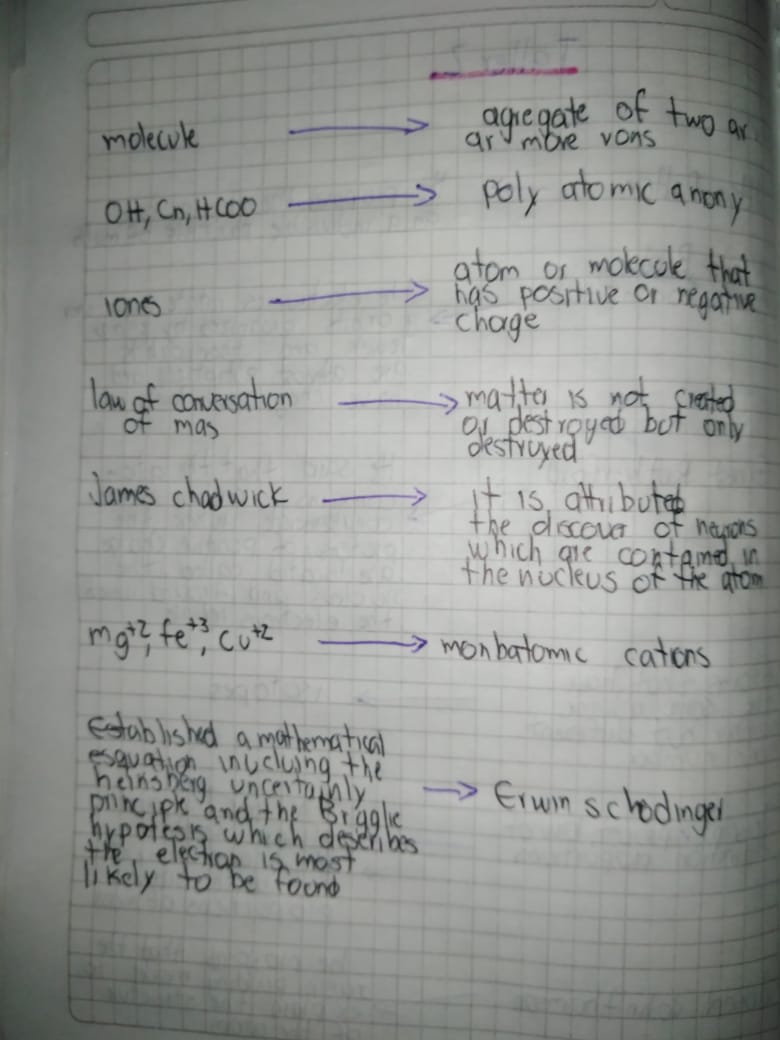 molecule → agregate of two or
or more vons
OH, Cn, HCOO → poly atomic anony
iones → atom or molecule that
has positive or negative
charge
law of conversation
of mas → matter is not created
or destroyed but only
destroyed
James chadwick → it is attributed
the discover of
which are contained in
the nucleus of the atom
mg⁺², fe⁺³, cu⁺² → monbatomic cations
Established a mathematical
esquation invcluing the
heinsberg uncertainly
principle and the Brgglie
hypotesis which describes
the election is most
likely to be found → Erwin schodinger